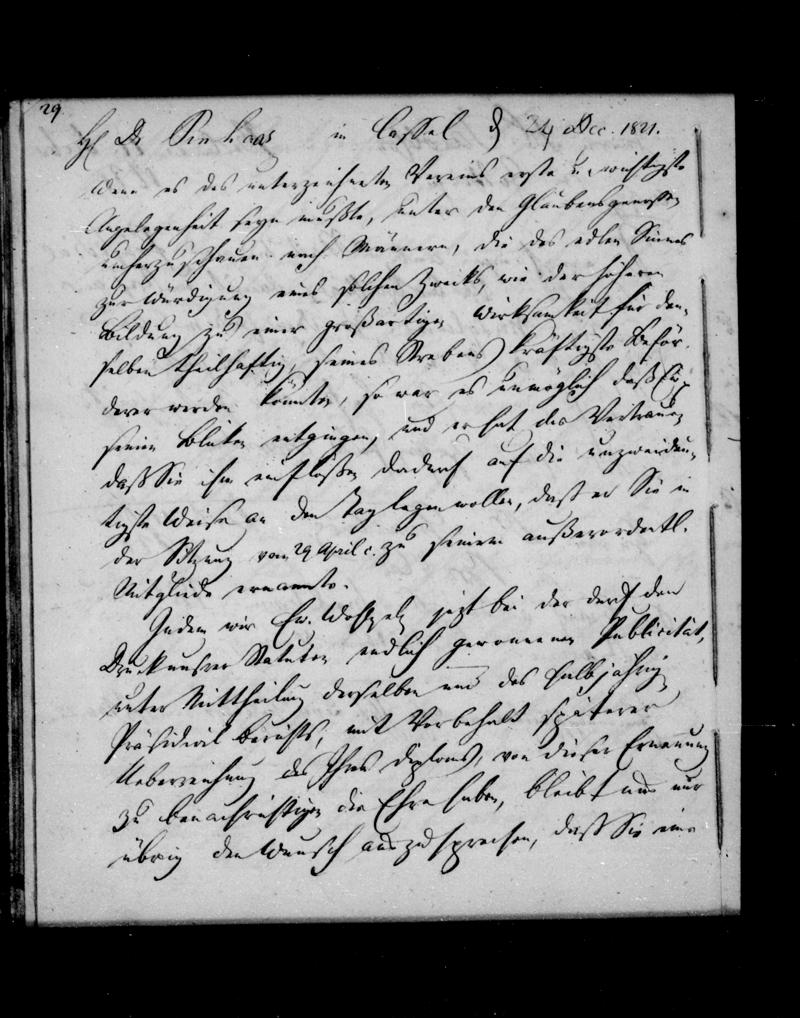 29
H Dr Pinhas in Cassel d 24 Dec. 1821.
Wenn es des unterzeichneten Vereins erste u. wichtigste
Angelegenheit seyn mußte, unter den Glaubensgenossen
umherzuschauen nach Männern, die des edlen Sinnes
zur Würdigung eines solchen Zwecks, wie der höheren
Bildung zu einer großartigen Wirksamkeit für den-
selben theilhaftig, seines Strebens kräftigste Beför-
derer werden könnten, so war es unmöglich daß Ew
seinen Blicken entgingen, und er hat das Vertrauen
daß Sie ihm einflößen dadurch auf die unzweideu-
tigste Weise an den Tag legen wollen, daß er Sie in
der Sitzung vom 29 April c. zu seinem außerordentl.
Mitgliede ernannte.
Indem wir Ew. Wohlgeb jezt bei der durch den
Druck unsrer Statuten endlich gewonnenen Publicität,
unter Mittheilung derselben und des halbjährig
Präsidial berichts, mit Vorbehalt späterer
Ueberreichung des Ihres Diploms, von dieser Ernennung
zu benachrichtigen die Ehre haben, bleibt uns nur
übrig den Wunsch auszusprechen, daß Sie eine